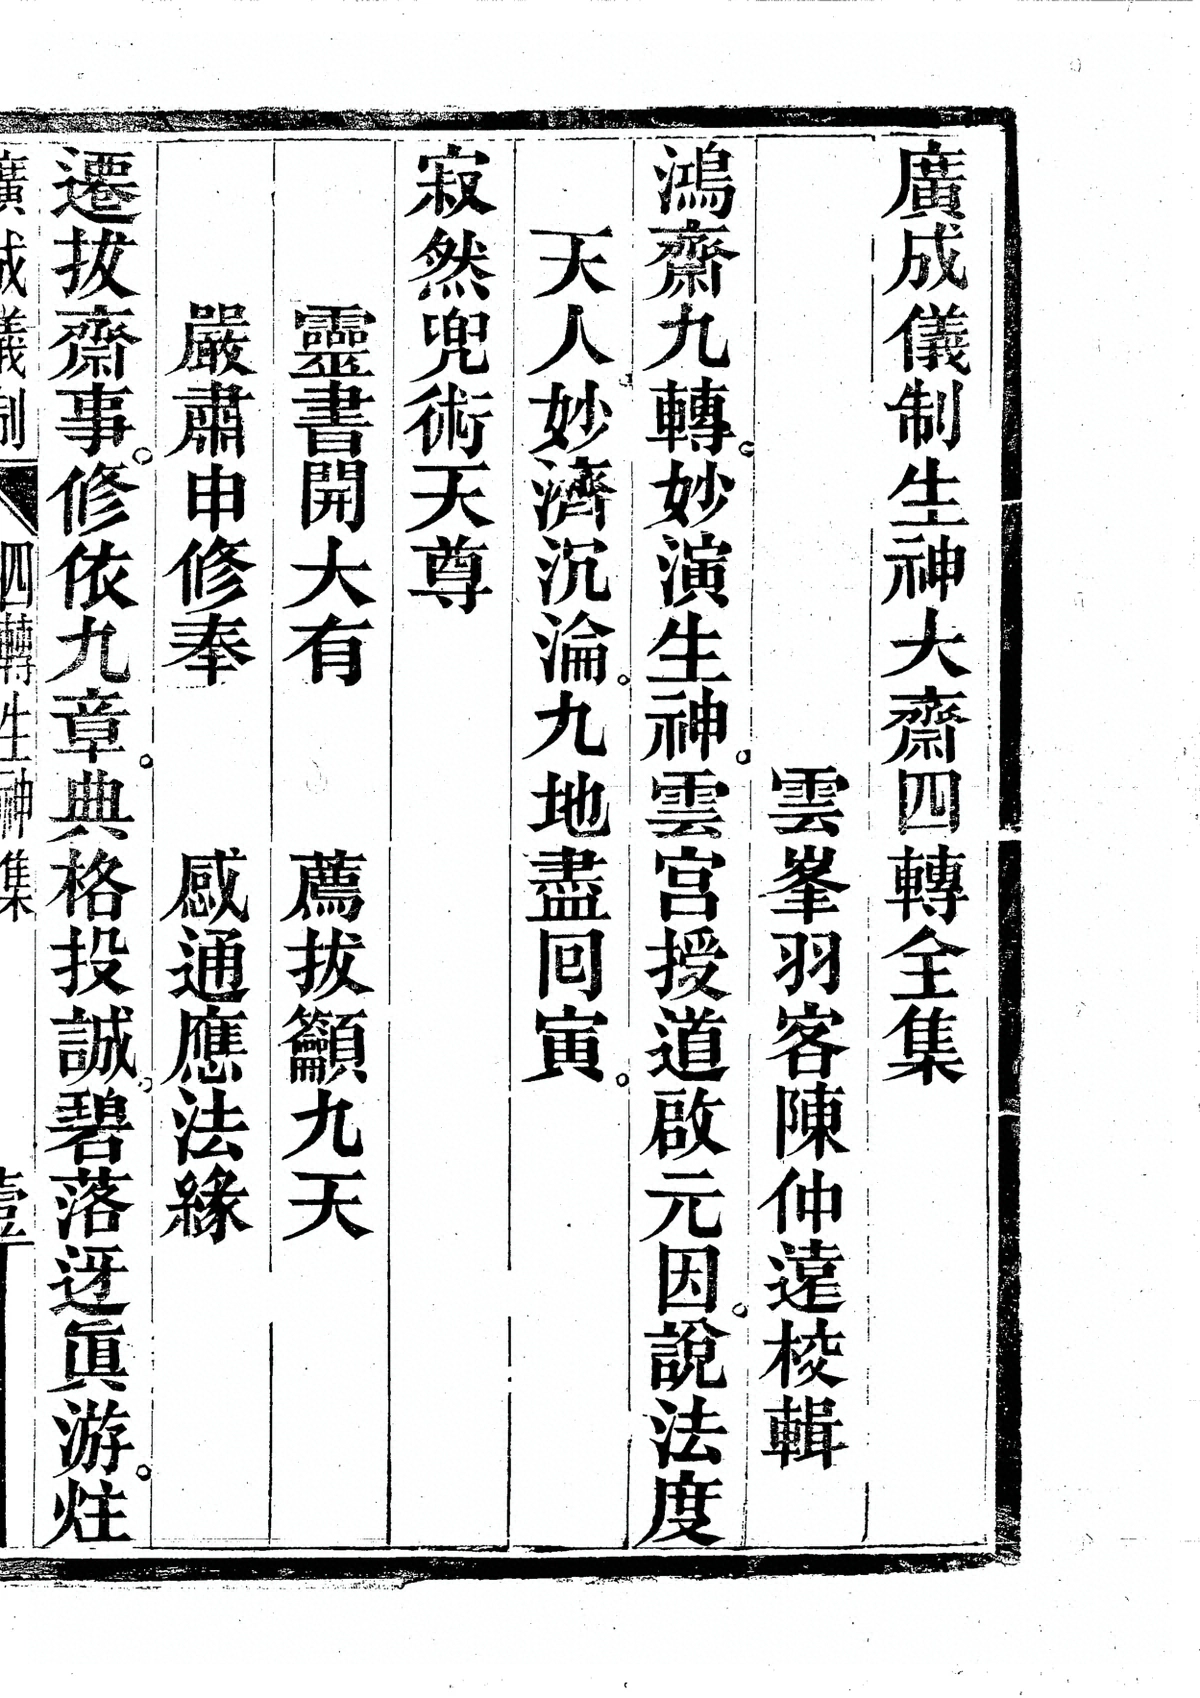 廣成儀制生神大齋四轉全集
雲峯羽客陳仲遠校輯
鴻齋九轉。妙演生神。雲宮授道啟元因。說法度
天人妙濟沉淪。九地盡回寅。
寂然兜術天尊
靈書開大有　薦拔籲九天
嚴肅申修奉　感通應法緣
遷拔齋事。修依九章。典格投誠。碧落迓眞游。炷
廣成儀制　四轉生神集　壹